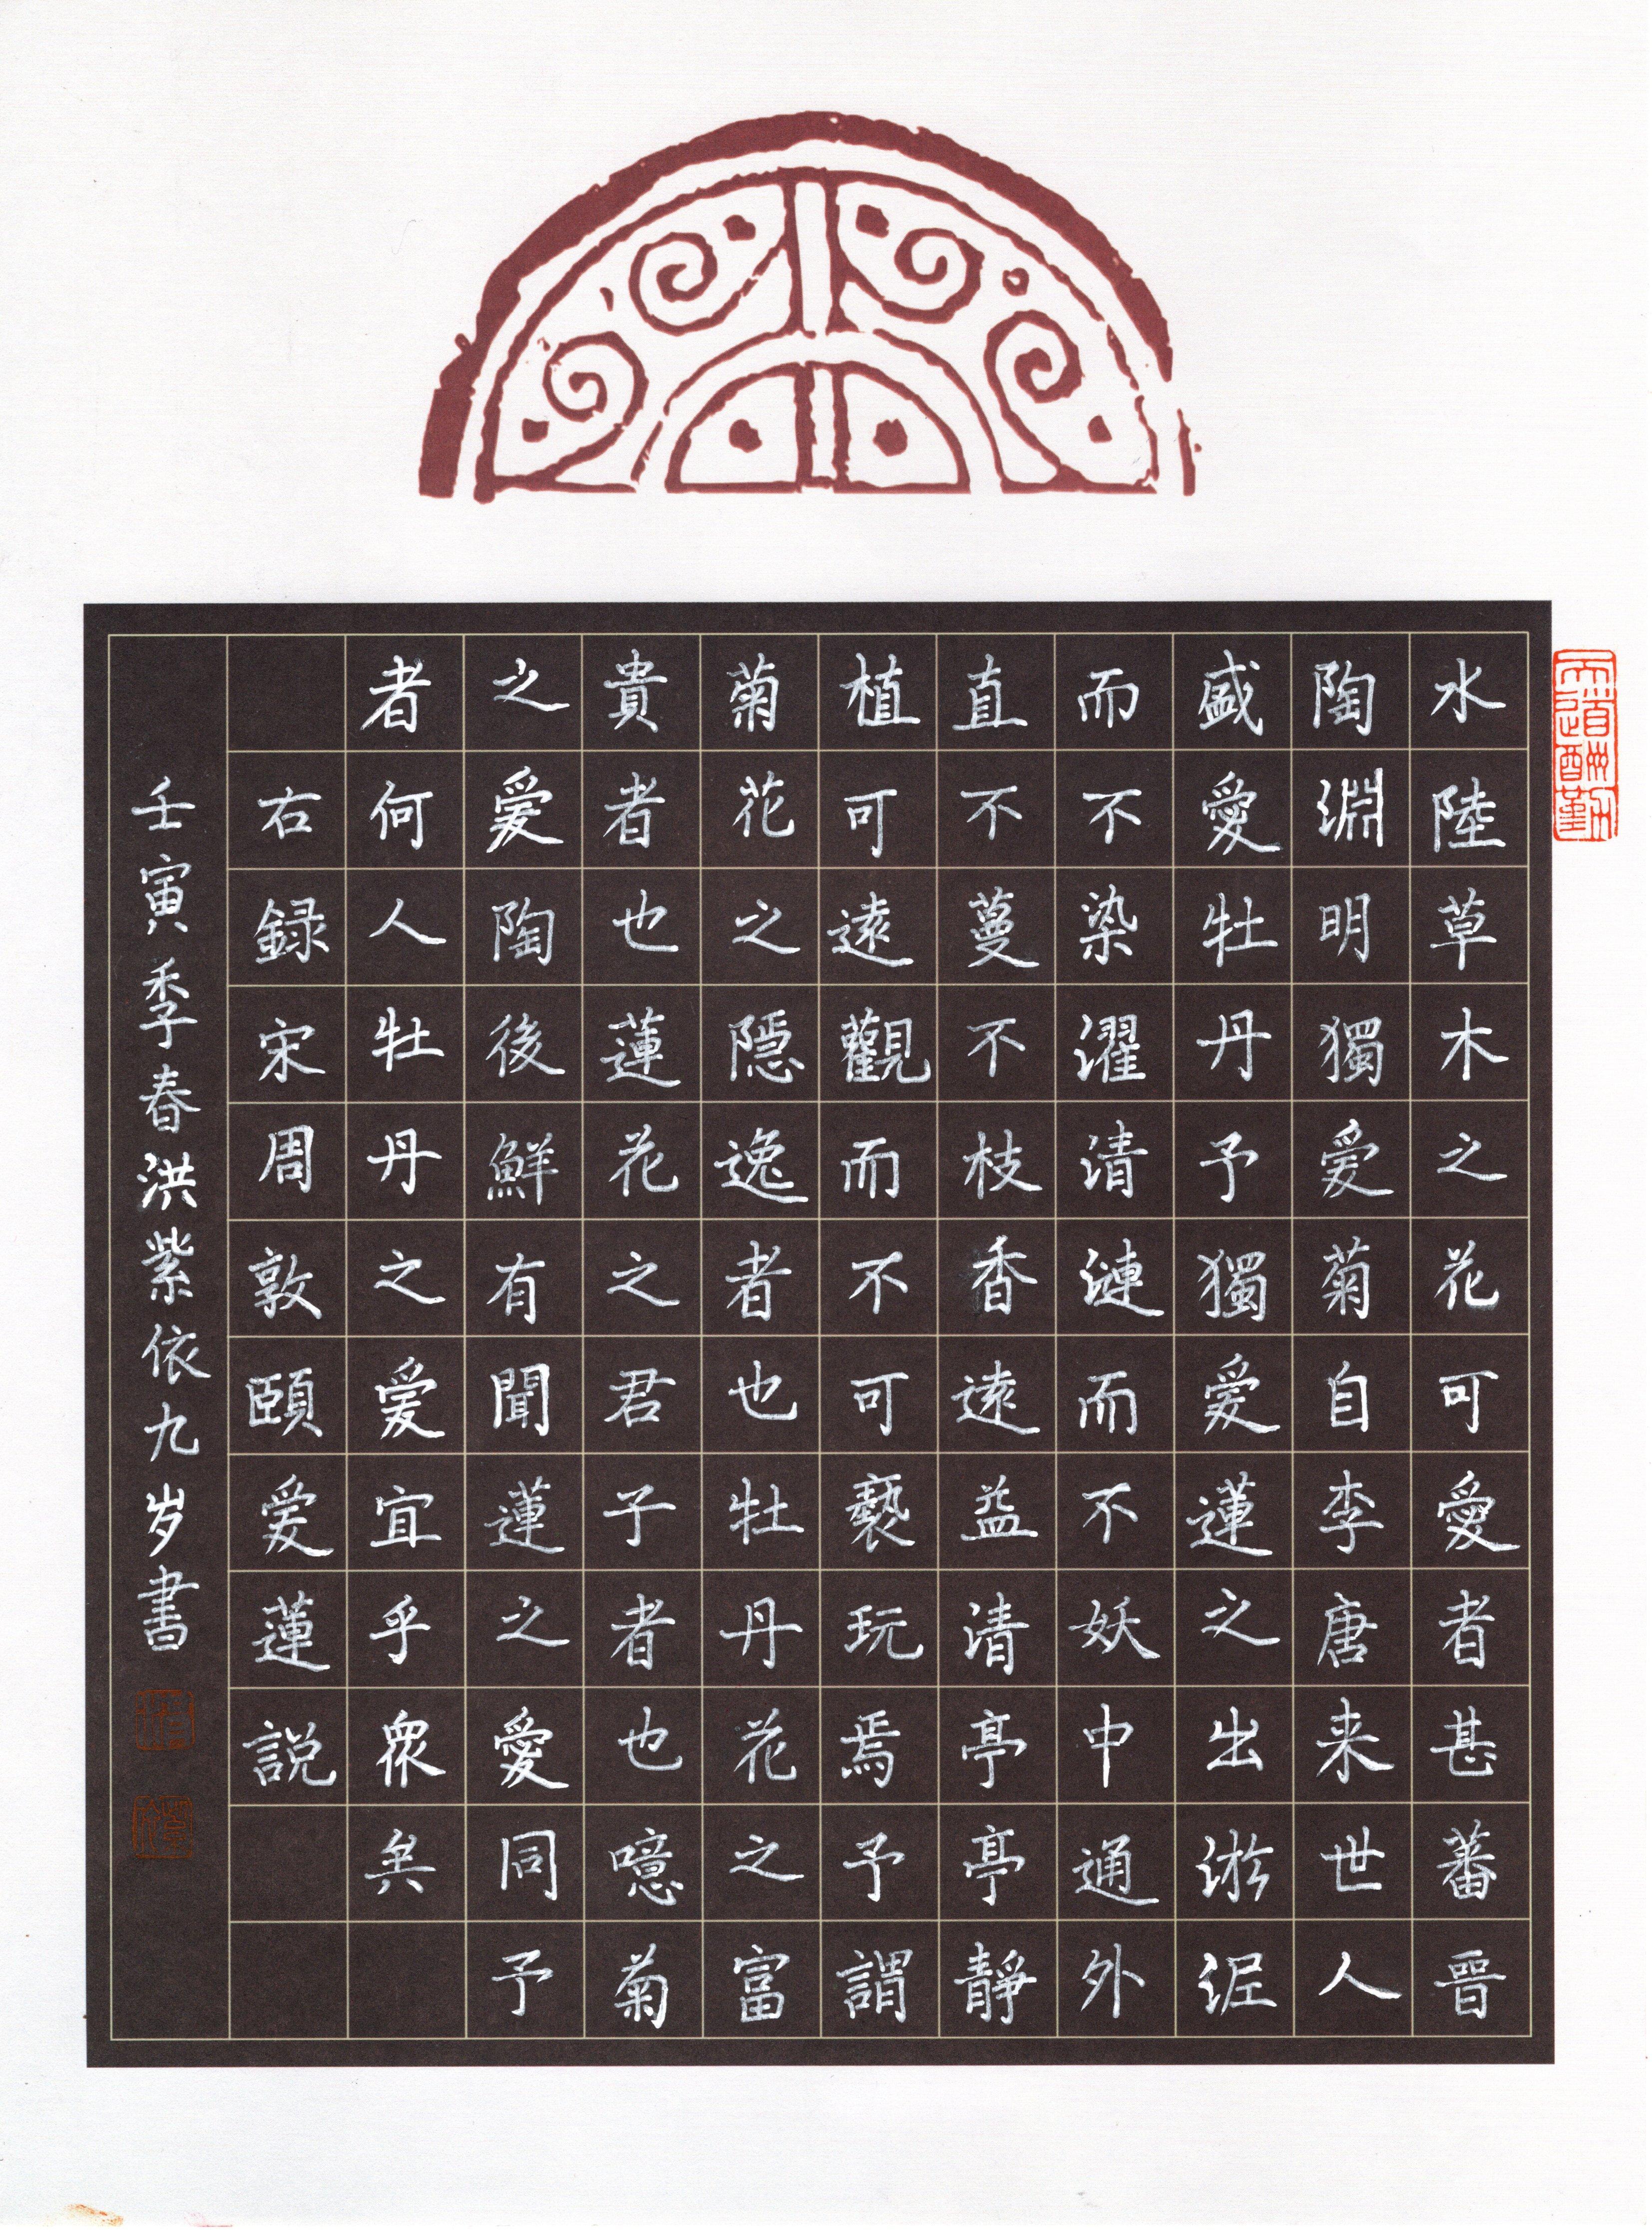 天道酬勤
水陸草木之花可愛者甚蕃晉
陶淵明獨爱菊自李唐来世人
盛愛牡丹予獨爱蓮之出淤泥
而不染濯清漣而不妖中通外
直不蔓不枝香遠益清亭亭靜
植可遠觀而不可褻玩焉予謂
菊花之隱逸者也牡丹花之富
貴者也蓮花之君子者也噫菊
之爱陶後鮮有聞蓮之愛同予
者何人牡丹之爱宜乎衆矣
右録宋周敦頤爱蓮説
壬寅季春洪紫依九岁書